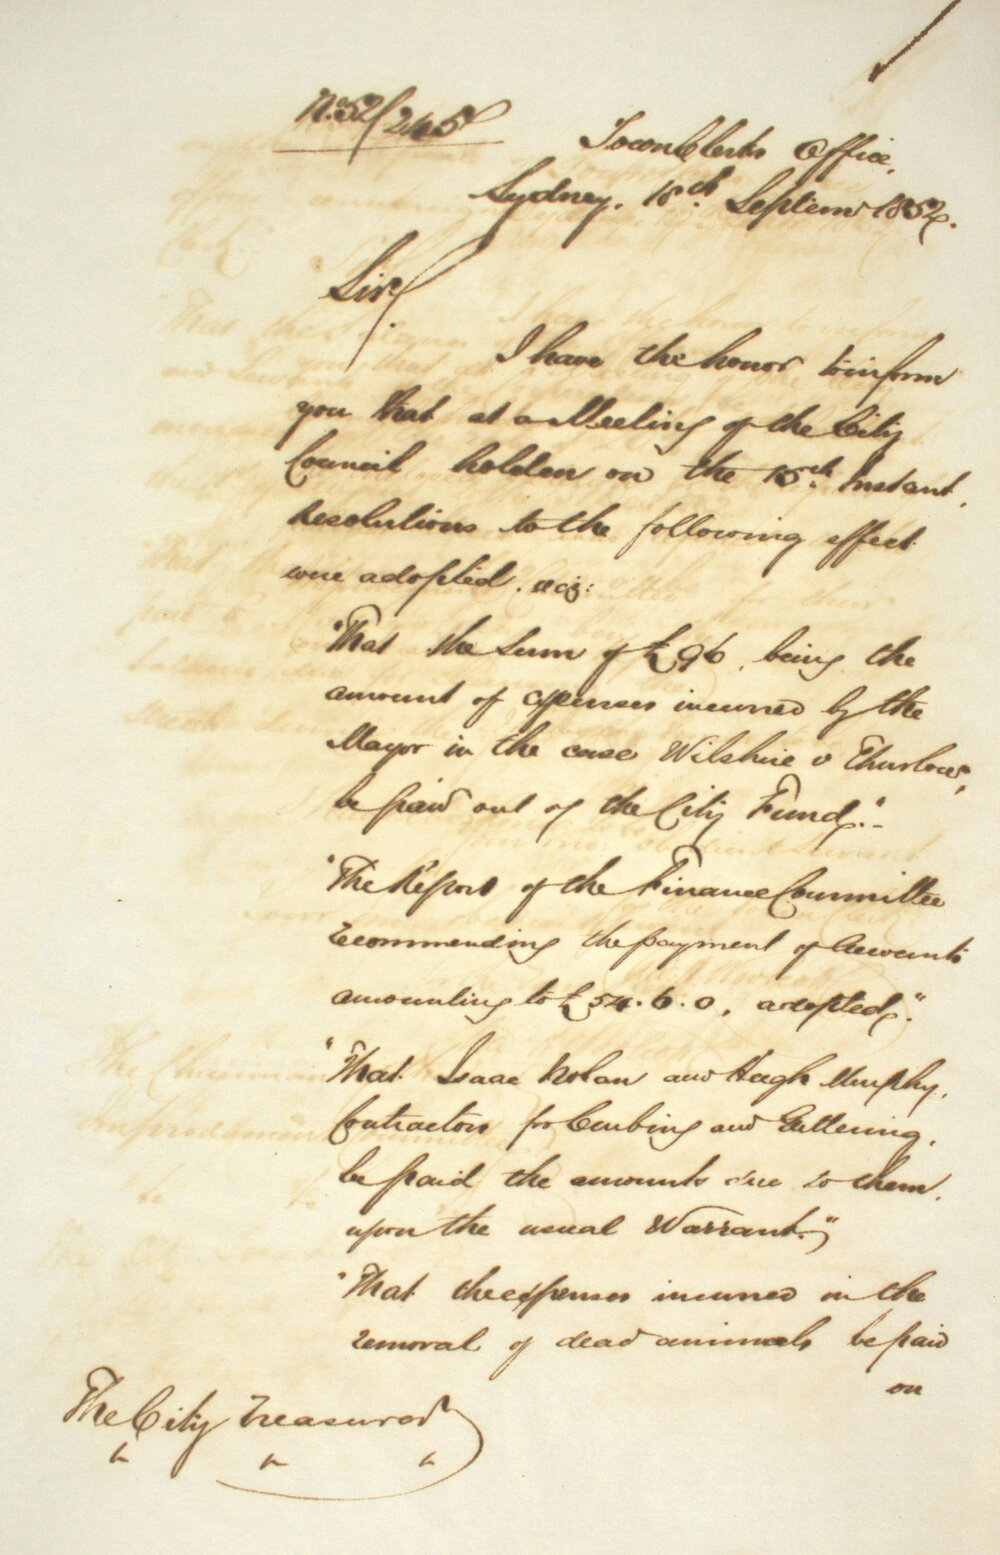 No. 52/245
Town Clerks Office,
Sydney. 18th. Septemr 1852.
Sir,
I have the honor to inform
you that at a Meeting of the City
Council holden on the 15th. Instant,
Resolutions to the following effect
were adopted. viz:
"That the Sum of £96, being the
amount of expenses incurred by the
Mayor in the case Wilshire v Thurlow,
be paid out of the City Fund."-
"The Report of the Finance Committee
recommending the payment of Accounts
amounting to £54.6.0, adopted."
"That Isaac Nolan and Hugh Murphy,
Contractors for Curbing and Guttering,
be paid the amounts due to them,
upon the usual Warrant."
"That the expenses incurred in the
removal of dead animals be paid
on
The City Treasurer
" " "